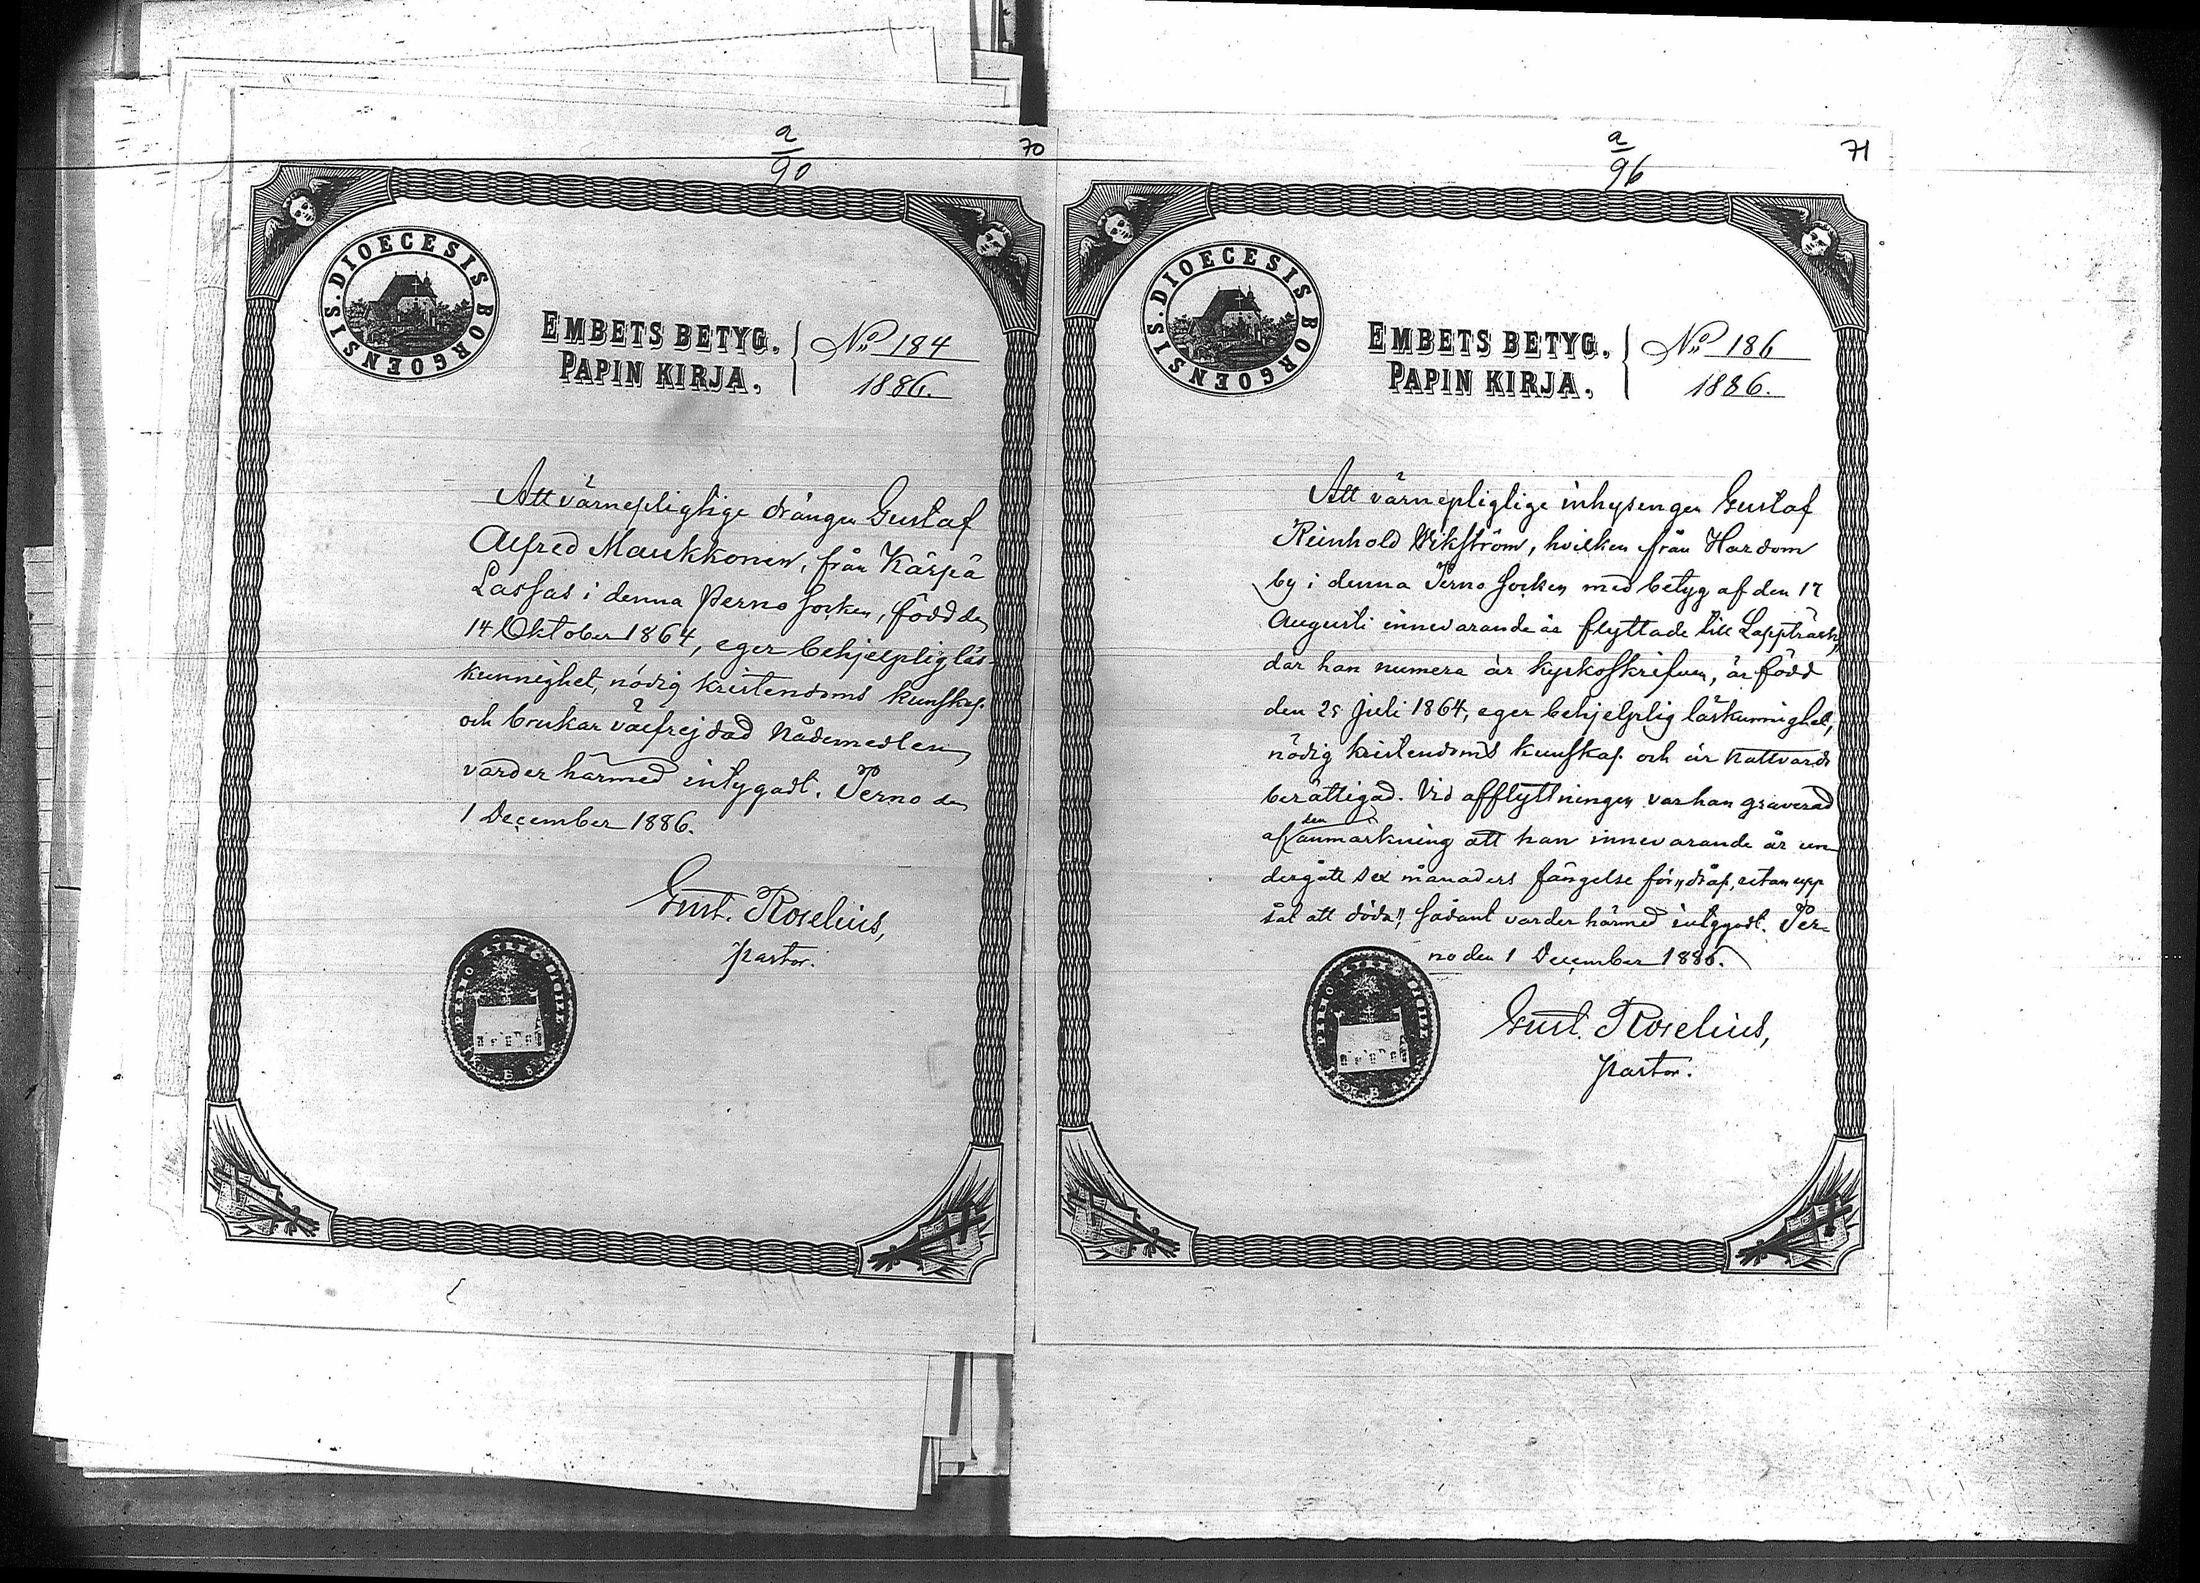 a
90
70
DIOECESIS BORGOENSIS.
EMBETS BETYG.
PAPIN KIRJA,
No 184
1886.
Att värnepligtige drängen Gustaf
Alfred Maukkonen, från Kärpä
Lassas i denna Perno socken, född den
14 Oktober 1864, eger behjelplig läs-
kunnighet, nödig kristendoms kunskap
och brukar välfrejdad nådemedlen,
varder härmed intygadt. Perno den
1 December 1886.
Gust. Roselius,
pastor.
PERNO KYRK SIGILL
a
96
71
DIOECESIS BORGOENSIS.
EMBETS BETYG.
PAPIN KIRJA,
No 186
1886.
Att värnepligtige inhysengen Gustaf
Reinhold Wikström, hvilken från Hardom
by i denna Perno socken med betyg af den 17
Augusti innevarande år flyttade till Lappträsk,
där han numera är kyrkoskrifven, är född
den 25 Juli 1864, eger behjelplig läskunnighet,
nödig kristendoms kunskap och är nattvards
berättigad. Vid afflyttningen var han graverad
af den anmärkning att han innevarande år un-
dergått sex månaders fängelse för "dråp, utan upp
såt att döda", sådant varder härmed intygadt. Per-
no den 1 December 1886.
Gust. Roselius,
pastor.
PERNO KYRK SIGILL